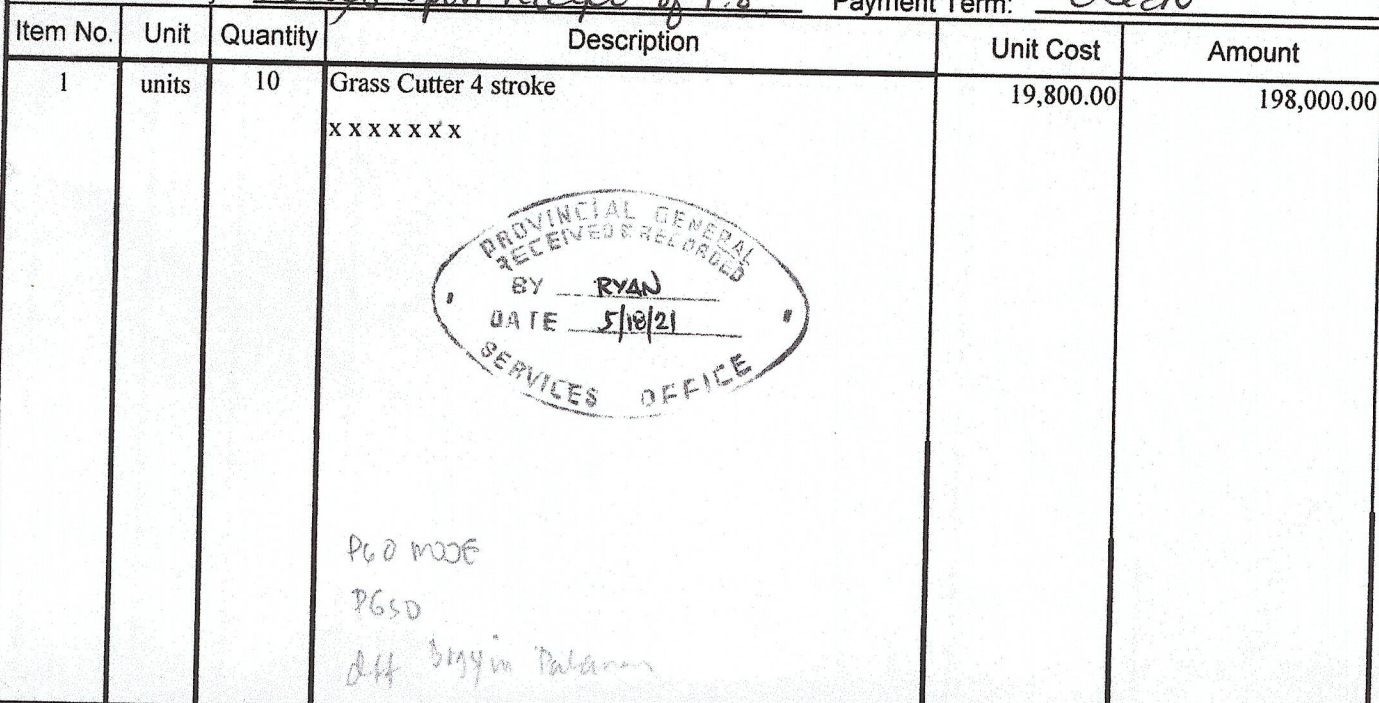 upon receipt of P.O. Payment Term:
Item No. Unit Quantity Description Unit Cost Amount
1 units 10 Grass Cutter 4 stroke 19,800.00 198,000.00
x x x x x x x
PROVINCIAL GENERAL
RECEIVED & RECORDED
BY RYAN
DATE 5/18/21
SERVICES OFFICE
PGO MOOE
PGSO